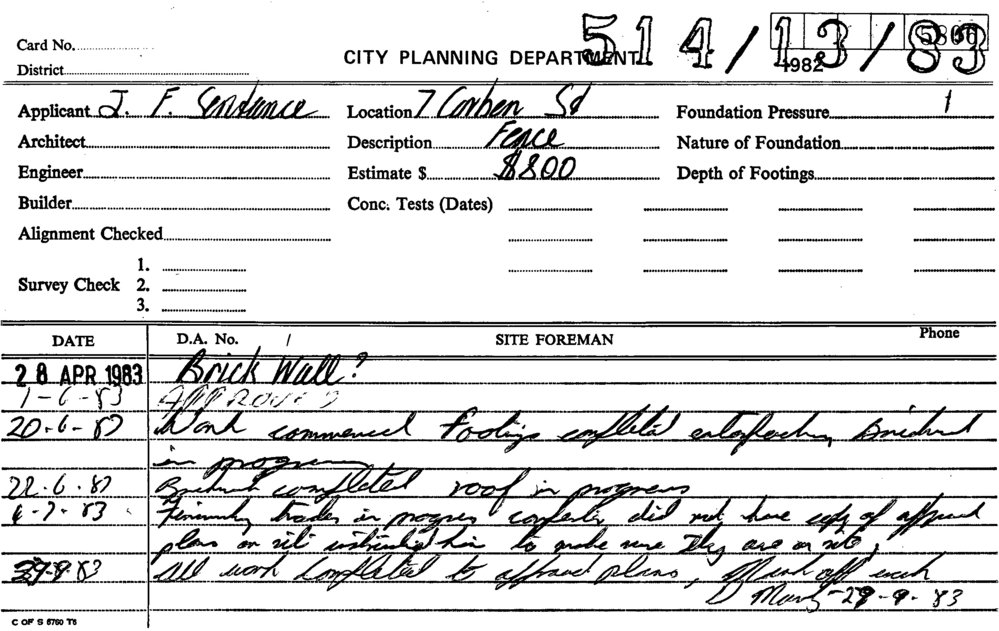 514/13/83
5806
1982
Card No.
CITY PLANNING DEPARTMENT
District
Applicant J. F. Sentance Location 7 Corben St Foundation Pressure
Architect Description Fence Nature of Foundation
Engineer Estimate $ $800 Depth of Footings
Builder Conc. Tests (Dates)
Alignment Checked
1.
Survey Check 2.
3.
DATE D.A. No. SITE FOREMAN Phone
28 APR 1983 Brick Wall?
1-6-83 APPROVED
20-6-83 Work commenced footings completed satisfactory Brickwork
in progress
22.6.83 Brickwork completed roof in progress
6-7-83 trades in progress did not have copy of approved
plans on site him to make sure they are on site,
29-9-83 All work completed to approved plans, Mark off
D 29-9-83
C OF S 5760 T5